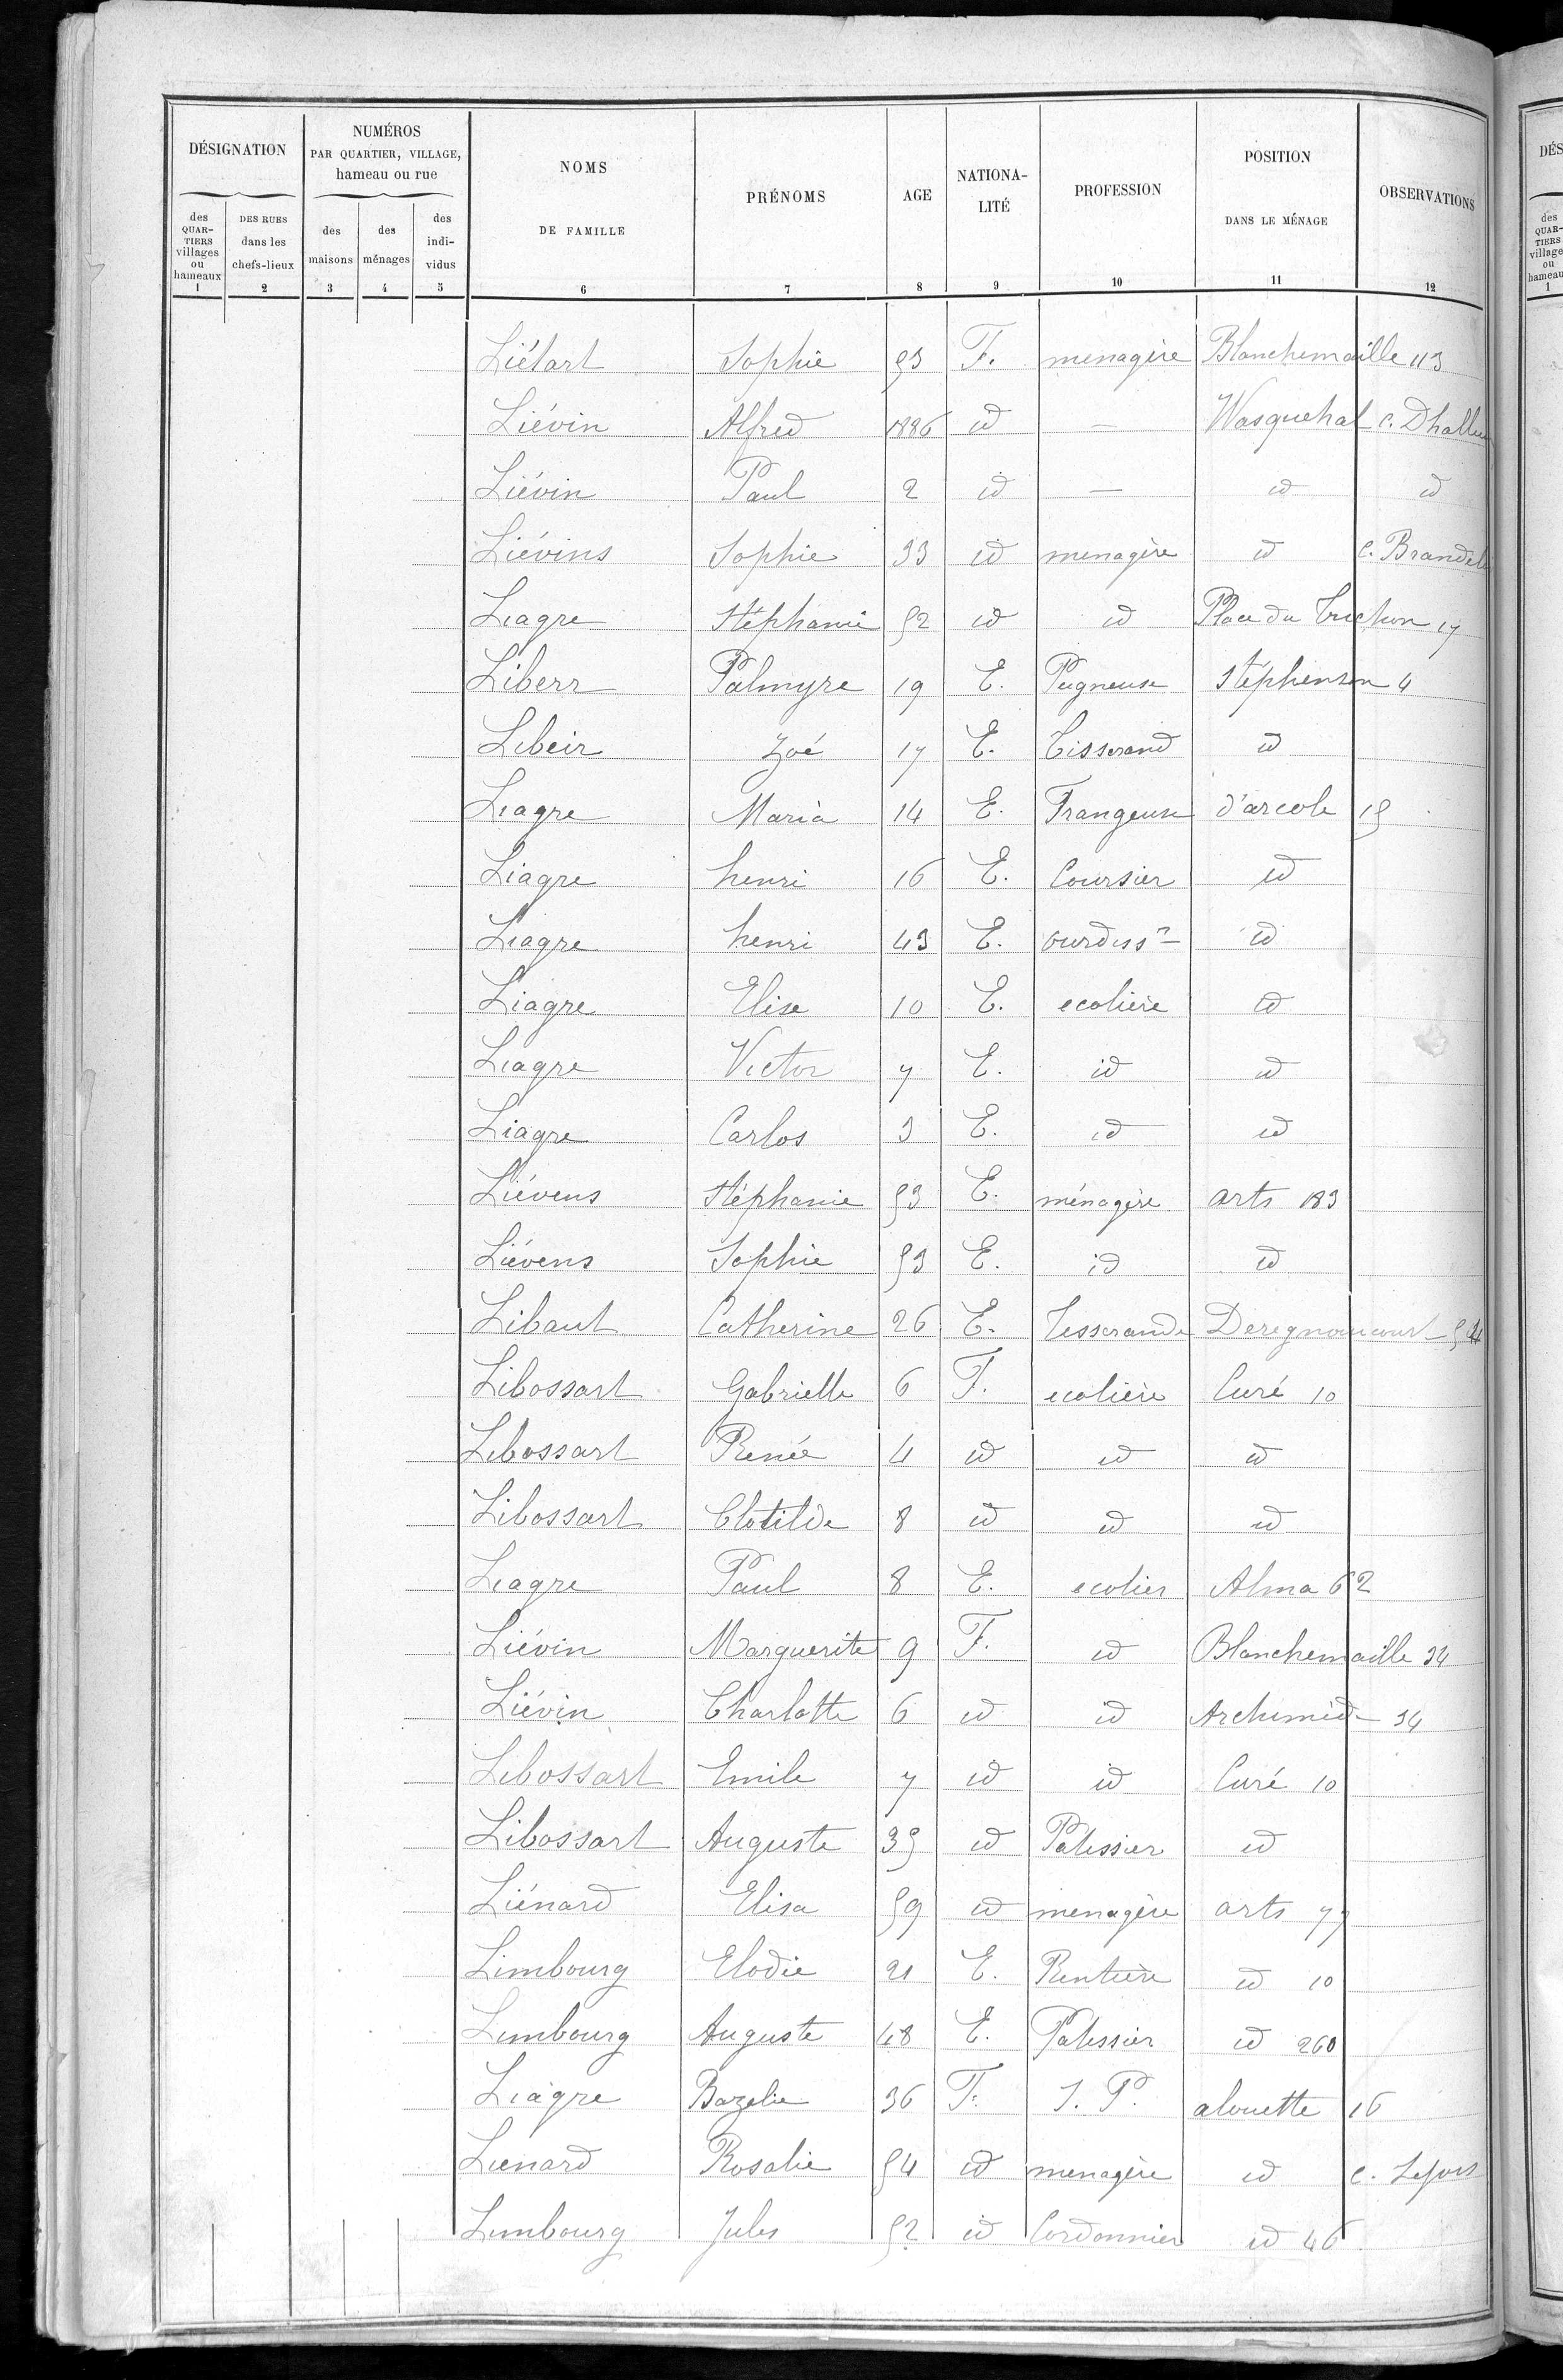 DÉSIGNATION NUMÉROS PAR QUARTIER, VILLAGE, hameau ou rue NOMS DE FAMILLE PRÉNOMS AGE NATIONA-LITÉ PROFESSION POSITION DANS LE MÉNAGE OBSERVATIONS
des QUAR-TIERS villages ou hameaux DES RUES dans les chefs-lieux des maisons des ménages des indi-vidus
1 2 3 4 5 6 7 8 9 10 11 12
Liétart Sophie 53 F. menagère Blanchemaille 113
Liévin Alfred 1886 id — Wasquehal c. Dhallu
Liévin Paul 2 id — id id
Liévins Sophie 33 id menagère id c. Brandel
Liagre Stéphanie 52 id id Place du Trichon 17
Liberr Palmyre 19 E. Peigneuse Stéphenson 4
Libeir Zoé 17 E. Tisserand id
Liagre Maria 14 E. Frangeuse d'arcole 15
Liagre henri 16 E. Coursier id
Liagre henri 43 E. ourdiss^r id
Liagre Elise 10 E. ecolière id
Liagre Victor 7 E. id id
Liagre Carlos 3 E. id id
Liévens Stéphanie 53 E. ménagère arts 183
Liévens Sophie 53 E. id id
Libaut Catherine 26 E. Tisserande Deregnaucourt
Libossart Gabrielle 6 F. ecolière Curé 10
Libossart Renée 4 id id id
Libossart Clotilde 8 id id id
Liagre Paul 8 E. ecolier Alma 62
Liévin Marguerite 9 F. id Blanchemaille 34
Liévin Charlotte 6 id id Archimède 34
Libossart Emile 7 id id Curé 10
Libossart Auguste 35 id Patissier id
Liénard Elisa 59 id menagère arts 77
Limbourg Elodie 21 E. Rentière id 10
Limbourg Auguste 48 E. Patissier id 260
Liagre Bazelie 36 F. S. P. alouette 16
Lienard Rosalie 54 id menagère id c.
Limbourg Jules 52 id Cordonnier id 46
DÉS
des QUAR-TIERS village ou hameau
1